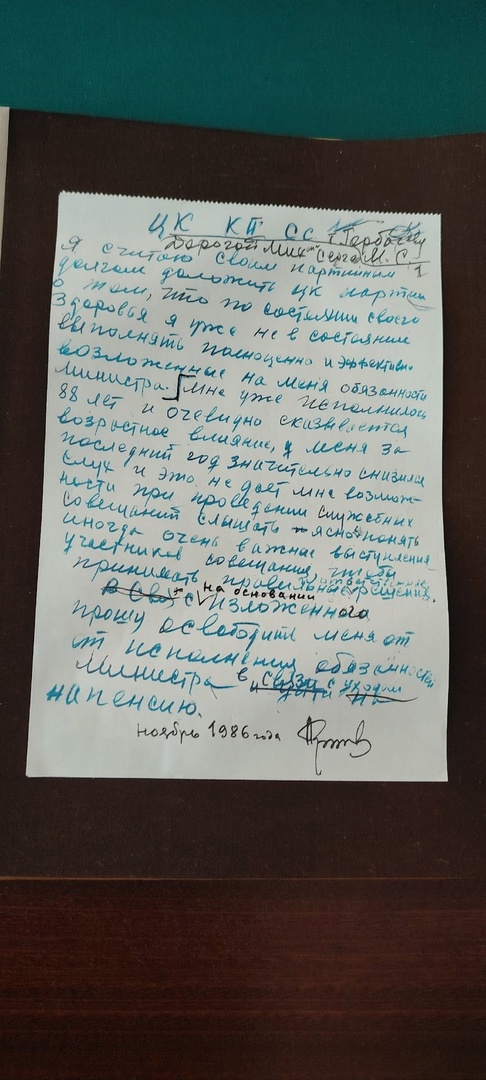 ЦК КП СС т. Горбачеву М. С.
Дорогой Мих. Серге
Я считаю своим партийным
долгом доложить ЦК партии
о том, что по состоянию своего
здоровья я уже не в состоянии
выполнять полноценно и эффективн
возложенные на меня обязанности
министра. [Мне уже исполнилось
88 лет и очевидно сказывается
возрастное влияние, у меня за
последний год значительно снизился
слух и это не дает мне возмож-
ности при проведении служебных
совещаний слышать ясно понять
иногда очень важные выступления
участников совещания, чтобы
принимать правильные решения.
в связ с на основании изложенного
прошу освободить меня от
от исполнения обязанностей
Министра в связи с уходом
на пенсию.
ноябрь 1986 года